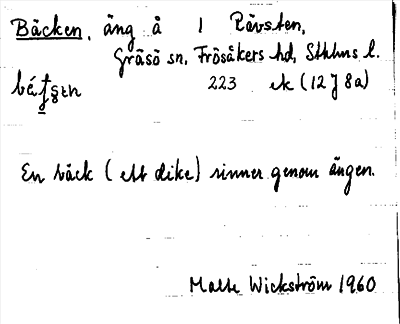 Bäcken, äng å 1 Rävsten,
Gräsö sn, Frösåkers hd, Sthlms l.
223 ek (12 J 8a)
En bäck (ett dike) rinner genom ängen.
Malte Wickström 1960